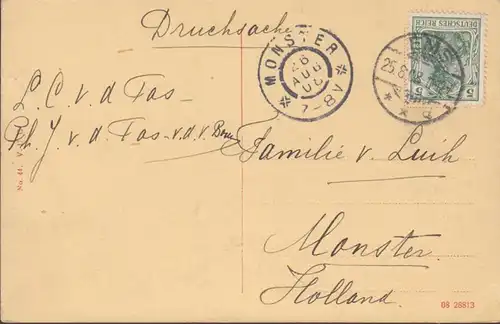 Drucksache
MONSTER
26
AUG
7-8V
EMS
25.8.08
DEUTSCHES REICH
5 5
L. C. v. d. Fas
Ph. J. v. d. Fas-v.d.v.
Familie v. Luik
Monster.
Holland.
No. 44.
08 28813